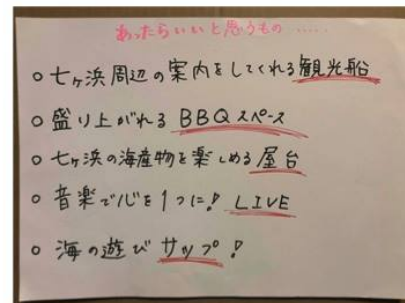 あったらいいと思うもの .....
○ 七ヶ浜周辺の案内をしてくれる観光船
○ 盛り上がれる BBQスペース
○ 七ヶ浜の海産物を楽しめる屋台
○ 音楽で心を1つに! LIVE
○ 海の遊び サップ!